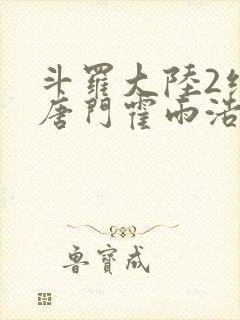 斗羅大陸2絕
唐門霍雨浩
魯寶成